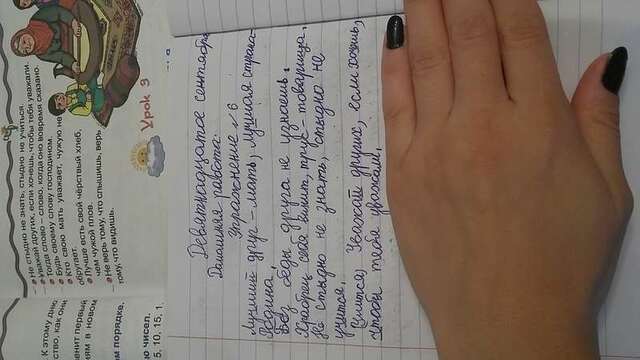 Не стыдно не знать, стыдно не учиться.
Уважай других, если хочешь, чтобы тебя уважали.
Тогда слово – слово, когда оно вовремя сказано.
Будь своему слову господином.
Кто свою мать уважает, чужую не
обругает.
Лучше есть свой чёрствый хлеб,
чем чужой плов.
Не верь тому, что слышишь, верь
тому, что видишь.
Урок 3
К этому
ство, как они
енит первый
иям в новом
м порядке,
ю чисел.
5, 10, 15, 1
Девятнадцатое сентября
Домашняя работа.
Упражнение 6
Лучший друг – мать, лучшая страна –
Родина.
Без беды друга не узнаешь.
Храбрец себя винит, трус – товарища.
Не стыдно не знать, стыдно не
учится.
Учится, Уважай других, если хочешь,
чтобы тебя уважали.